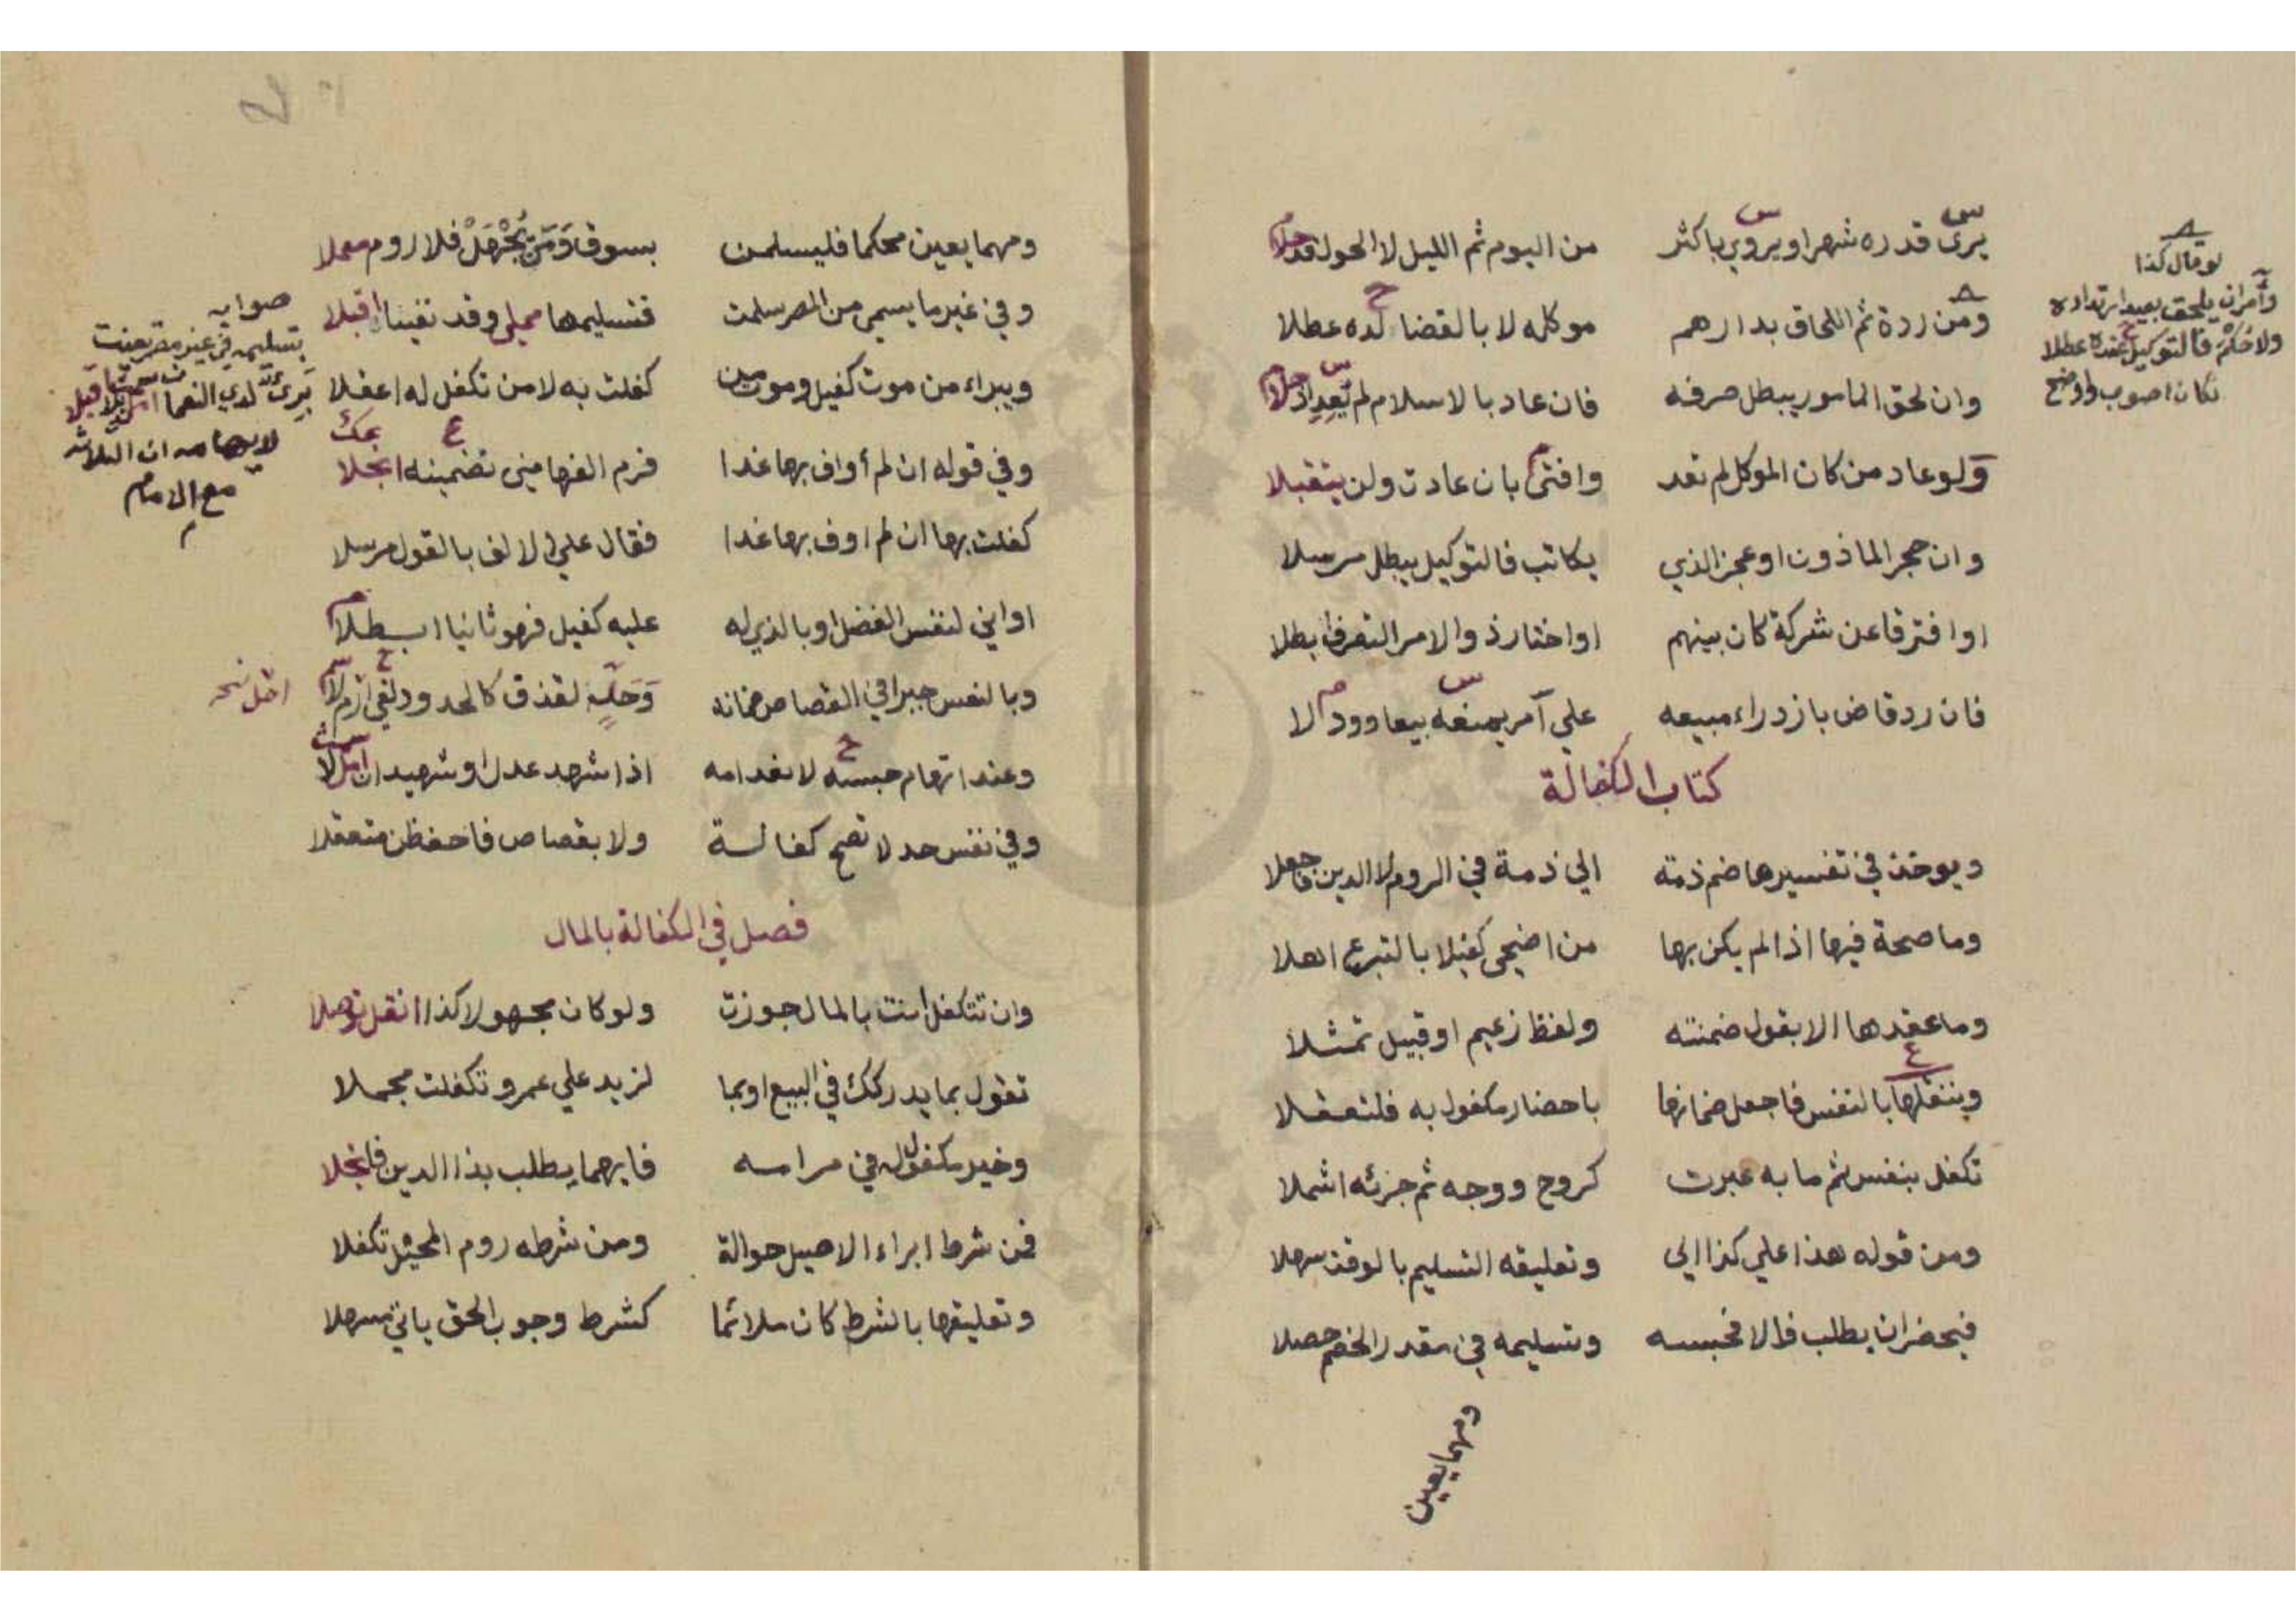 يرى قدره شهرا ويروي باكثر من اليوم ثم الليل لا الحول قد جلا
ومن ردة ثم اللحاق بدارهم موكله لا بالقضا لده عطلا
وان لحق المامور يبطل صرفه فان عاد بالاسلام لم تعد اذ جلا
ولو عاد من كان الموكل لم تعد وافتى بان عادت ولن يتقبلا
وان حجر الماذون او عجز الذي يكاتب فالتوكيل يبطل مرسلا
او افترقا عن شركة كان بينهم او اختار ذو الامر التصرف ابطلا
فان رد قاض بازدراء مبيعه علي آمر يمنعه بيعا وود لا
كتاب الكفالة
ويوخذ في تفسيرها ضم ذمته الي ذمة في الروم لا الدين فاجعلا
وما صحة فيها اذا لم يكن بها من اضحى كفيلا بالتبرع اهلا
وما عقدها الا بقول ضمنته ولفظ زعيم او قبيل تمثلا
وينقلها بالنفس فاجعل ضمانها باحضار مكفول به فلتعقلا
تكفل بنفس ثم ما به عبرت كروح ووجه ثم جزئه اشملا
ومن قوله هذا علي كذا الي وتعليقه التسليم بالوقت سهلا
فيحضر ان يطلب والا فحبسه وتسليمه في مقدر الخصم حصلا
ومهما يعين
لو قال كذا
وآمر ان يلحق بعيد ارتداده
ولا حكم فالتوكيل عنده عطلا
لكان اصوب واوضح
ومهما يعين محكما فليسلمن بسوق ومن يجهل فلا روم معملا
وفي غير ما يسمى من المصر سلمت فتسليمها محلي وقد نفياه اقبلا
ويبراء من موت كفيل وموت من كفلت به لا من تكفل له اعقلا
وفي قوله ان لم أواف بها غدا فرم الفها مني تضمينه انجلا
كفلت بها ان لم اوف بها غدا فقال علي الالف بالقول مرسلا
او اني لنفس الفضل او بالذي له عليه كفيل فهو ثانيا ابطلا
وبالنفس جبرا في القصاص ضمانه وحلة لقذف كالحدود لفي ازملا
وعند اتهام حبسه لانعدامه اذا شهد عدل او شهيدان امللا
وفي نفس حد لا تصح كفالة ولا بقصاص فاحفظن متعقلا
فصل في الكفالة بالمال
وان تتكفل انت بالمال جوزت ولو كان مجهولا كذا انقل توصلا
تقول بما يدرككك في البيع او بما لزيد علي عمرو تكفلت مجملا
وخير مكفول له في مرامه فايهما يطلب بذا الدين فانجلا
فمن شرط ابراء الاصيل حوالة ومن شرطه روم المحيل تكفلا
وتعليقها بالشرط كان ملائما كشرط وجوب الحق ياتي مسهلا
صوابه
بتسليمه في غير مصر
يرى لدي النعما
مع الامام